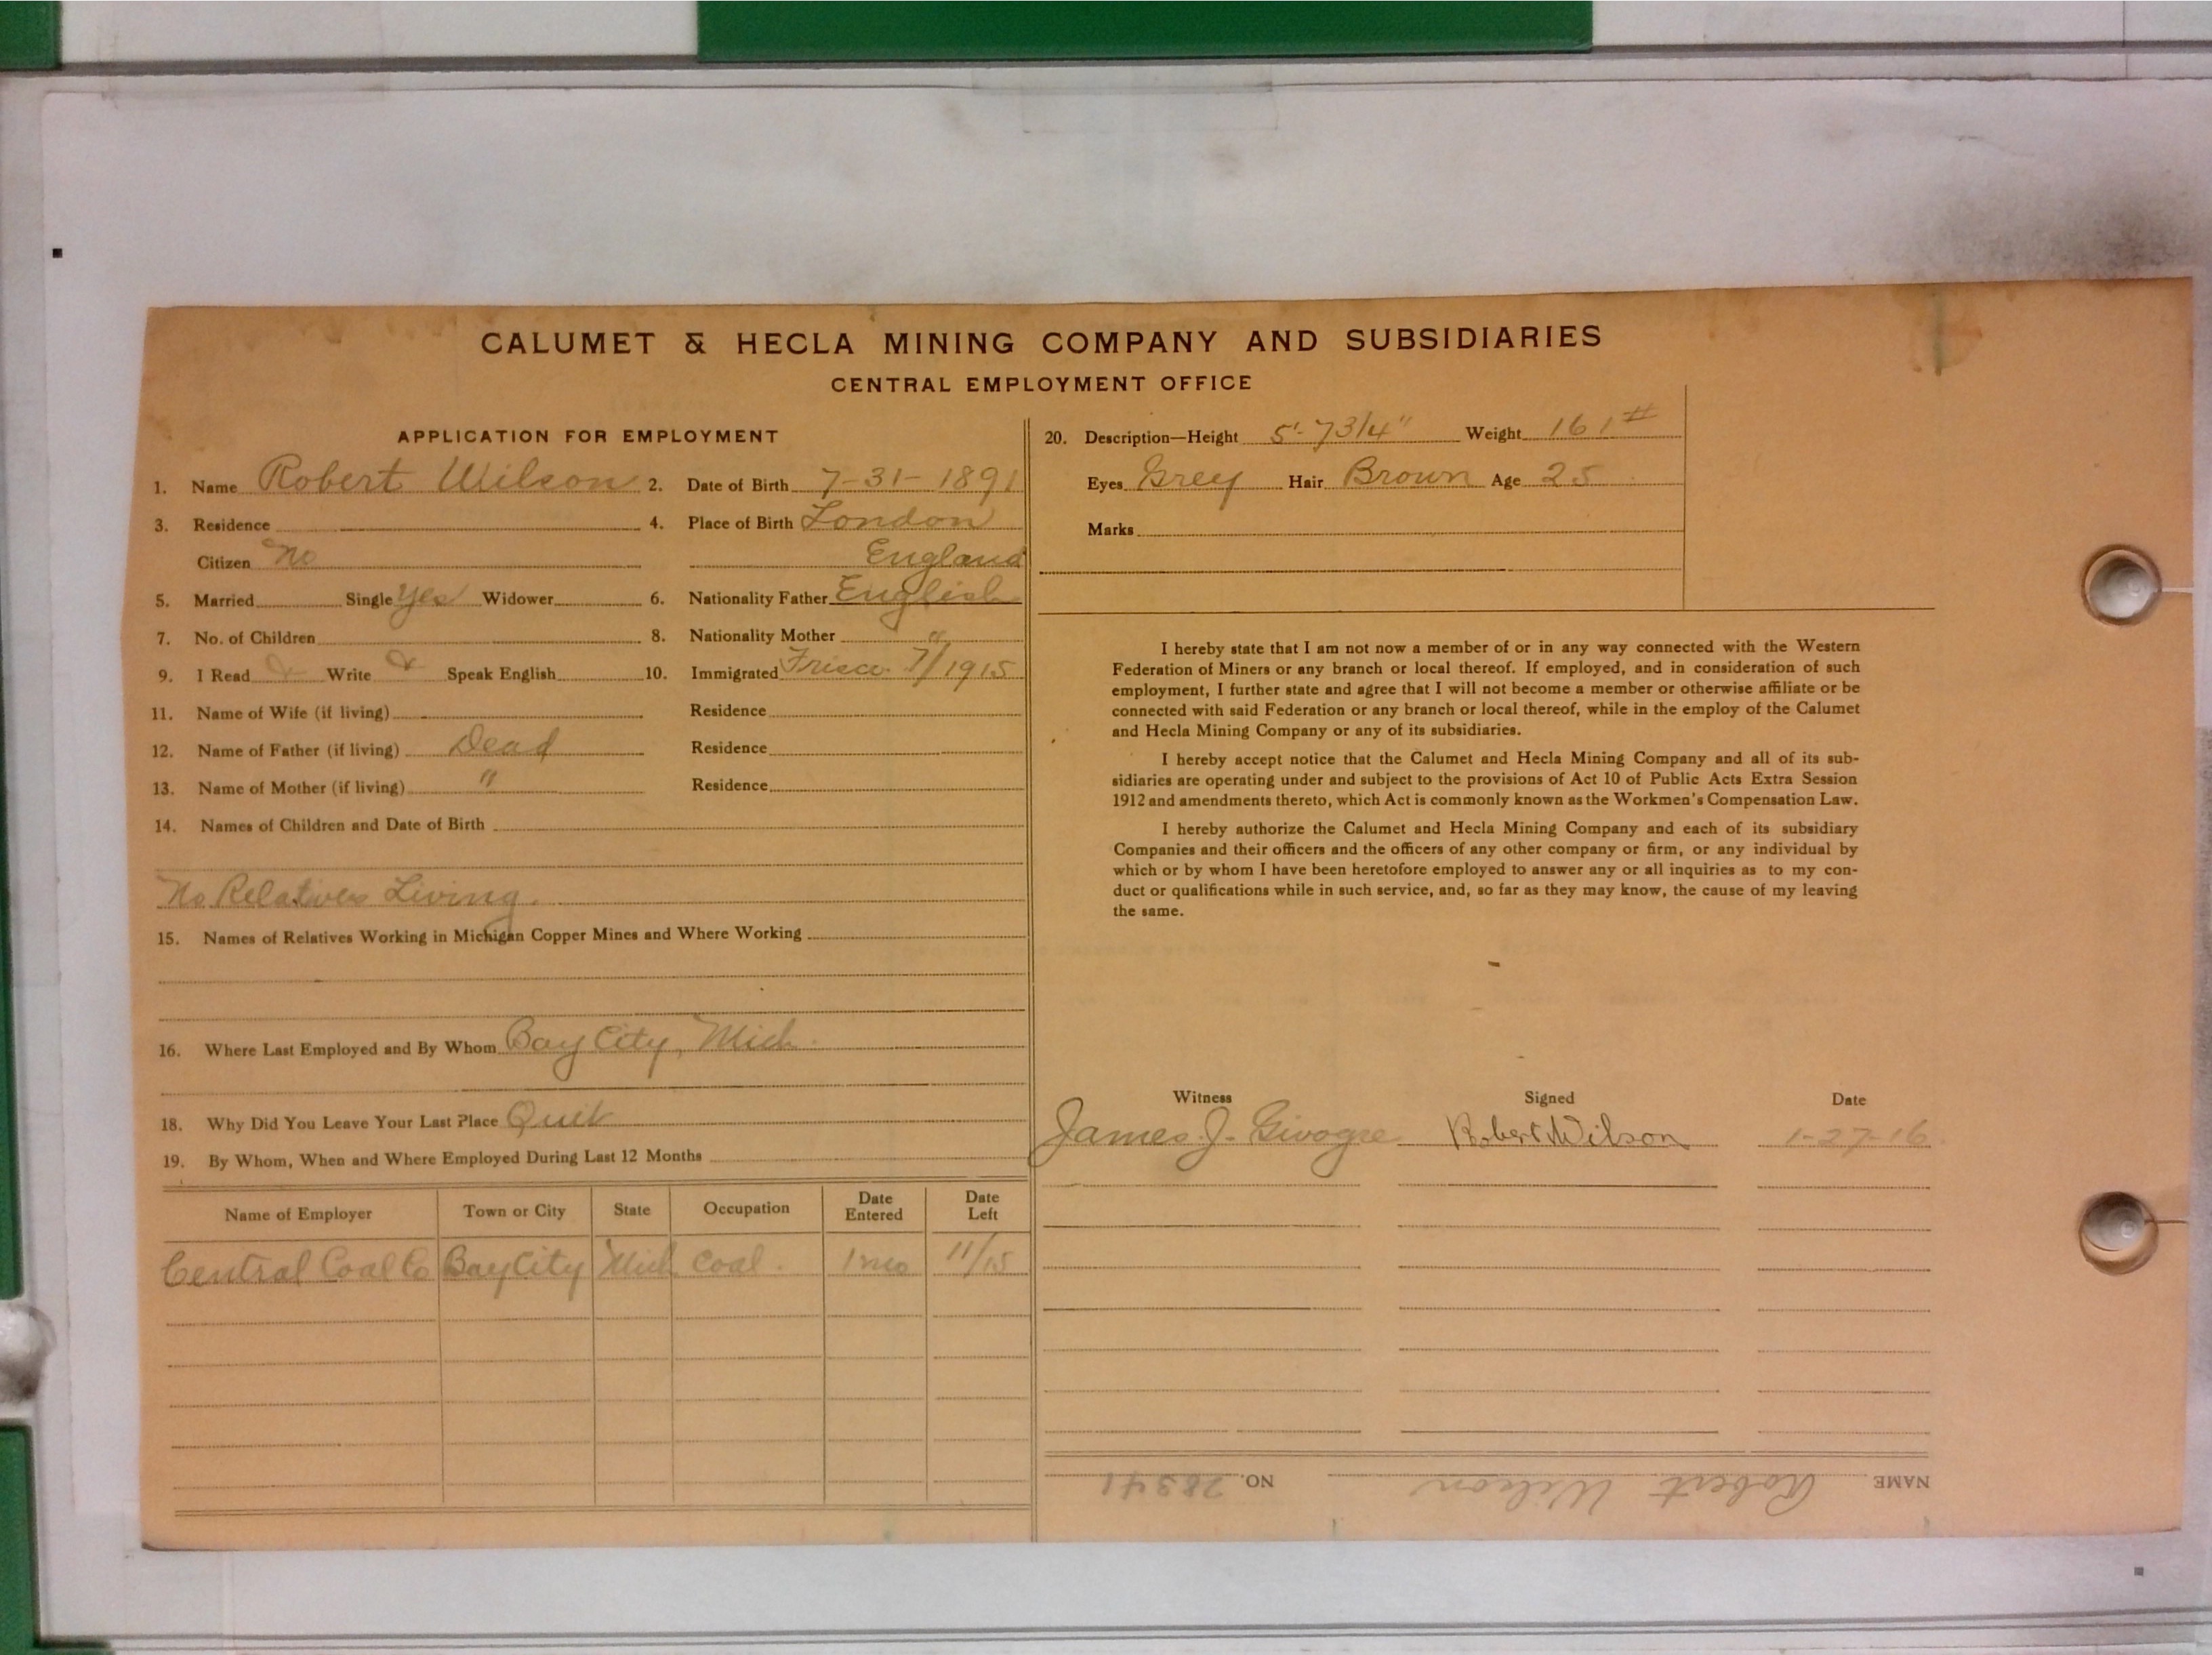 CALUMET & HECLA MINING COMPANY AND SUBSIDIARIES
CENTRAL EMPLOYMENT OFFICE
APPLICATION FOR EMPLOYMENT
1. Name Robert Wilson 2. Date of Birth 7-31-1891
3. Residence 4. Place of Birth London
Citizen No England
5. Married Single Yes Widower 6. Nationality Father English
7. No. of Children 8. Nationality Mother "
9. I Read Write Speak English 10. Immigrated Frisco 7/1915
11. Name of Wife (if living) Residence
12. Name of Father (if living) Dead Residence
13. Name of Mother (if living) " Residence
14. Names of Children and Date of Birth
No Relatives Living.
15. Names of Relatives Working in Michigan Copper Mines and Where Working
16. Where Last Employed and By Whom Bay City, Mich.
18. Why Did You Leave Your Last Place Quit
19. By Whom, When and Where Employed During Last 12 Months
Name of Employer Town or City State Occupation Date Entered Date Left
Central Coal Co Bay City Mich Coal. 1 mo 11/15
20. Description—Height 5'-7 3/4" Weight 161#
Eyes Grey Hair Brown Age 25
Marks
I hereby state that I am not now a member of or in any way connected with the Western
Federation of Miners or any branch or local thereof. If employed, and in consideration of such
employment, I further state and agree that I will not become a member or otherwise affiliate or be
connected with said Federation or any branch or local thereof, while in the employ of the Calumet
and Hecla Mining Company or any of its subsidiaries.
I hereby accept notice that the Calumet and Hecla Mining Company and all of its sub-
sidiaries are operating under and subject to the provisions of Act 10 of Public Acts Extra Session
1912 and amendments thereto, which Act is commonly known as the Workmen's Compensation Law.
I hereby authorize the Calumet and Hecla Mining Company and each of its subsidiary
Companies and their officers and the officers of any other company or firm, or any individual by
which or by whom I have been heretofore employed to answer any or all inquiries as to my con-
duct or qualifications while in such service, and, so far as they may know, the cause of my leaving
the same.
Witness Signed Date
James J. Robert Wilson 1-27-16
NAME Robert Wilson NO. 28341